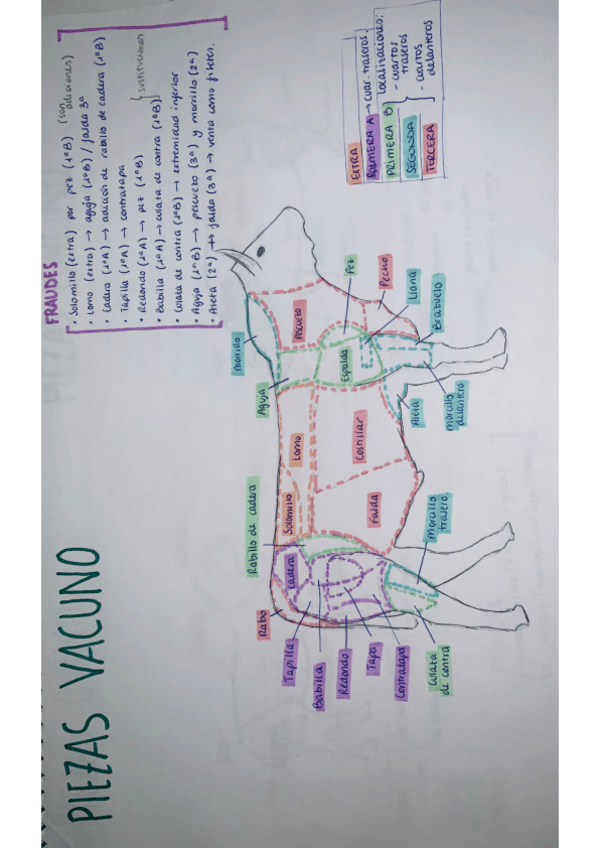 PIEZAS VACUNO
FRAUDES
• Solomillo (extra) por pez (1ªB) (son adiciones)
• Lomo (extra) → aguja (1ªB) / falda 3ª
• Cadera (1ªA) → adición de rabillo de cadera (1ªB)
• Tapilla (1ªA) → contratapa
• Redondo (1ªA) → pez (1ªB)
• Babilla (1ªA) → culata de contra (1ªB)
} sustituciones
• Culata de contra (1ªB) → extremidad inferior
• Aguja (1ªB) → pescuezo (3ª) y morrillo (2ª)
• Aleta (2ª) → falda (3ª) → venta como filetes.
EXTRA
PRIMERA A → cuar. traseros.
PRIMERA B
SEGUNDA
TERCERA
localizaciones:
- cuartos traseros
- cuartos delanteros
Rabo
Rabillo de cadera
Aguja
Morrillo
Tapilla
Cadera
Solomillo
Lomo
Pescuezo
Babilla
Redondo
Tapa
Contratapa
Culata
de contra
Falda
Costillar
Espalda
Pez
Pecho
Llana
Brazuelo
Morcillo
trasero
Aleta
morcillo
delantero